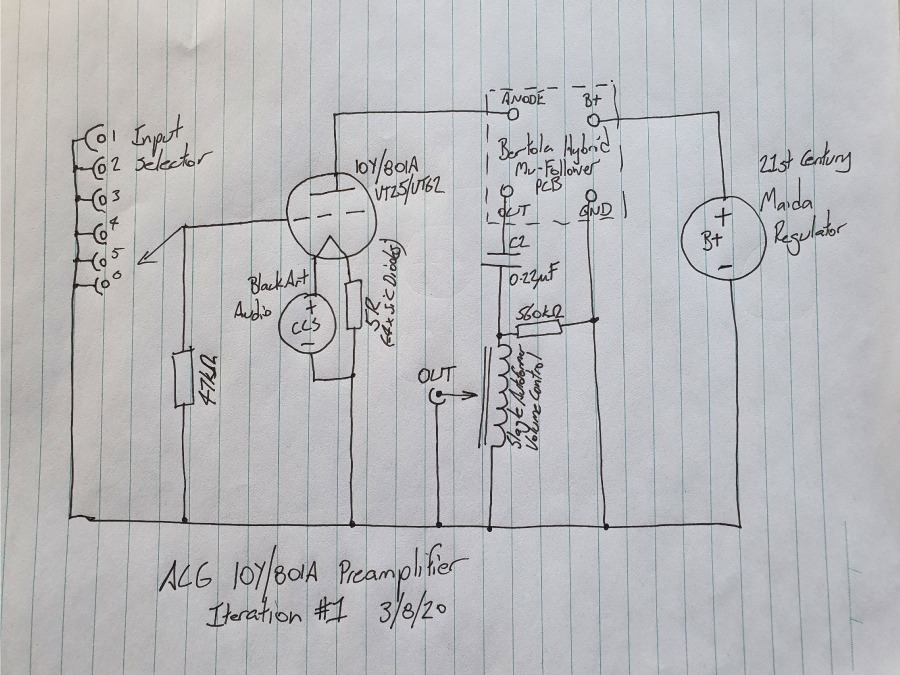 1
2
3
4
5
6
Input
Selector
10Y/801A
VT25/VT62
Black Art
Audio
+
CCS
-
5R
(4x SiC Diodes)
47kΩ
ANODE
B+
Bartola Hybrid
Mu-Follower
PCB
OUT
GND
C2
0.22µF
560kΩ
OUT
Slagle Autoformer
Volume Control
21st Century
Maida
Regulator
+
B+
-
ACG 10Y/801A Preamplifier
Iteration #1 3/8/20